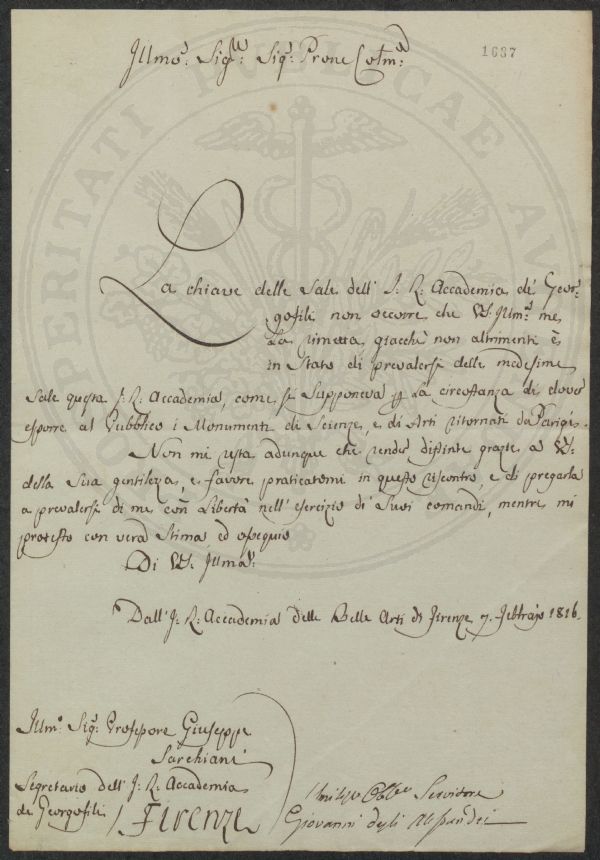 1687
Illmo: Sigre: Sig: Prone Colmo:
La chiave delle Sale dell' I: R: Accademia de' Geor=
gofili non occorre che VS. Illma: me
la rimetta giacchè non altrimenti è
in Stato di prevalersi delle medesime
Sale questa I: R: Accademia, come si supponeva p la circostanza di dover
esporre al Pubblico i Monumenti di Scienze, e di Arti ritornati da Parigi.
Non mi resta adunque che render distinte grazie a VS:
della Sua gentilezza, e favore praticatomi in questo riscontro, e di pregarla
a prevalersi di me con Libertà nell' esercizio di Suoi comandi, mentre mi
protesto con vera Stima ed ossequio
Di VS: Illma:
Dall' I: R: Accademia delle Belle Arti di Firenze 7. Febbrajo 1816.
Illmo: Sig: Professore Giuseppe
Sarchiani
Segretario dell' I: R: Accademia
de Georgofili / Firenze
Obbmo Servitore
Giovanni degli Alessandri
PERITATI PUBLICAE AU